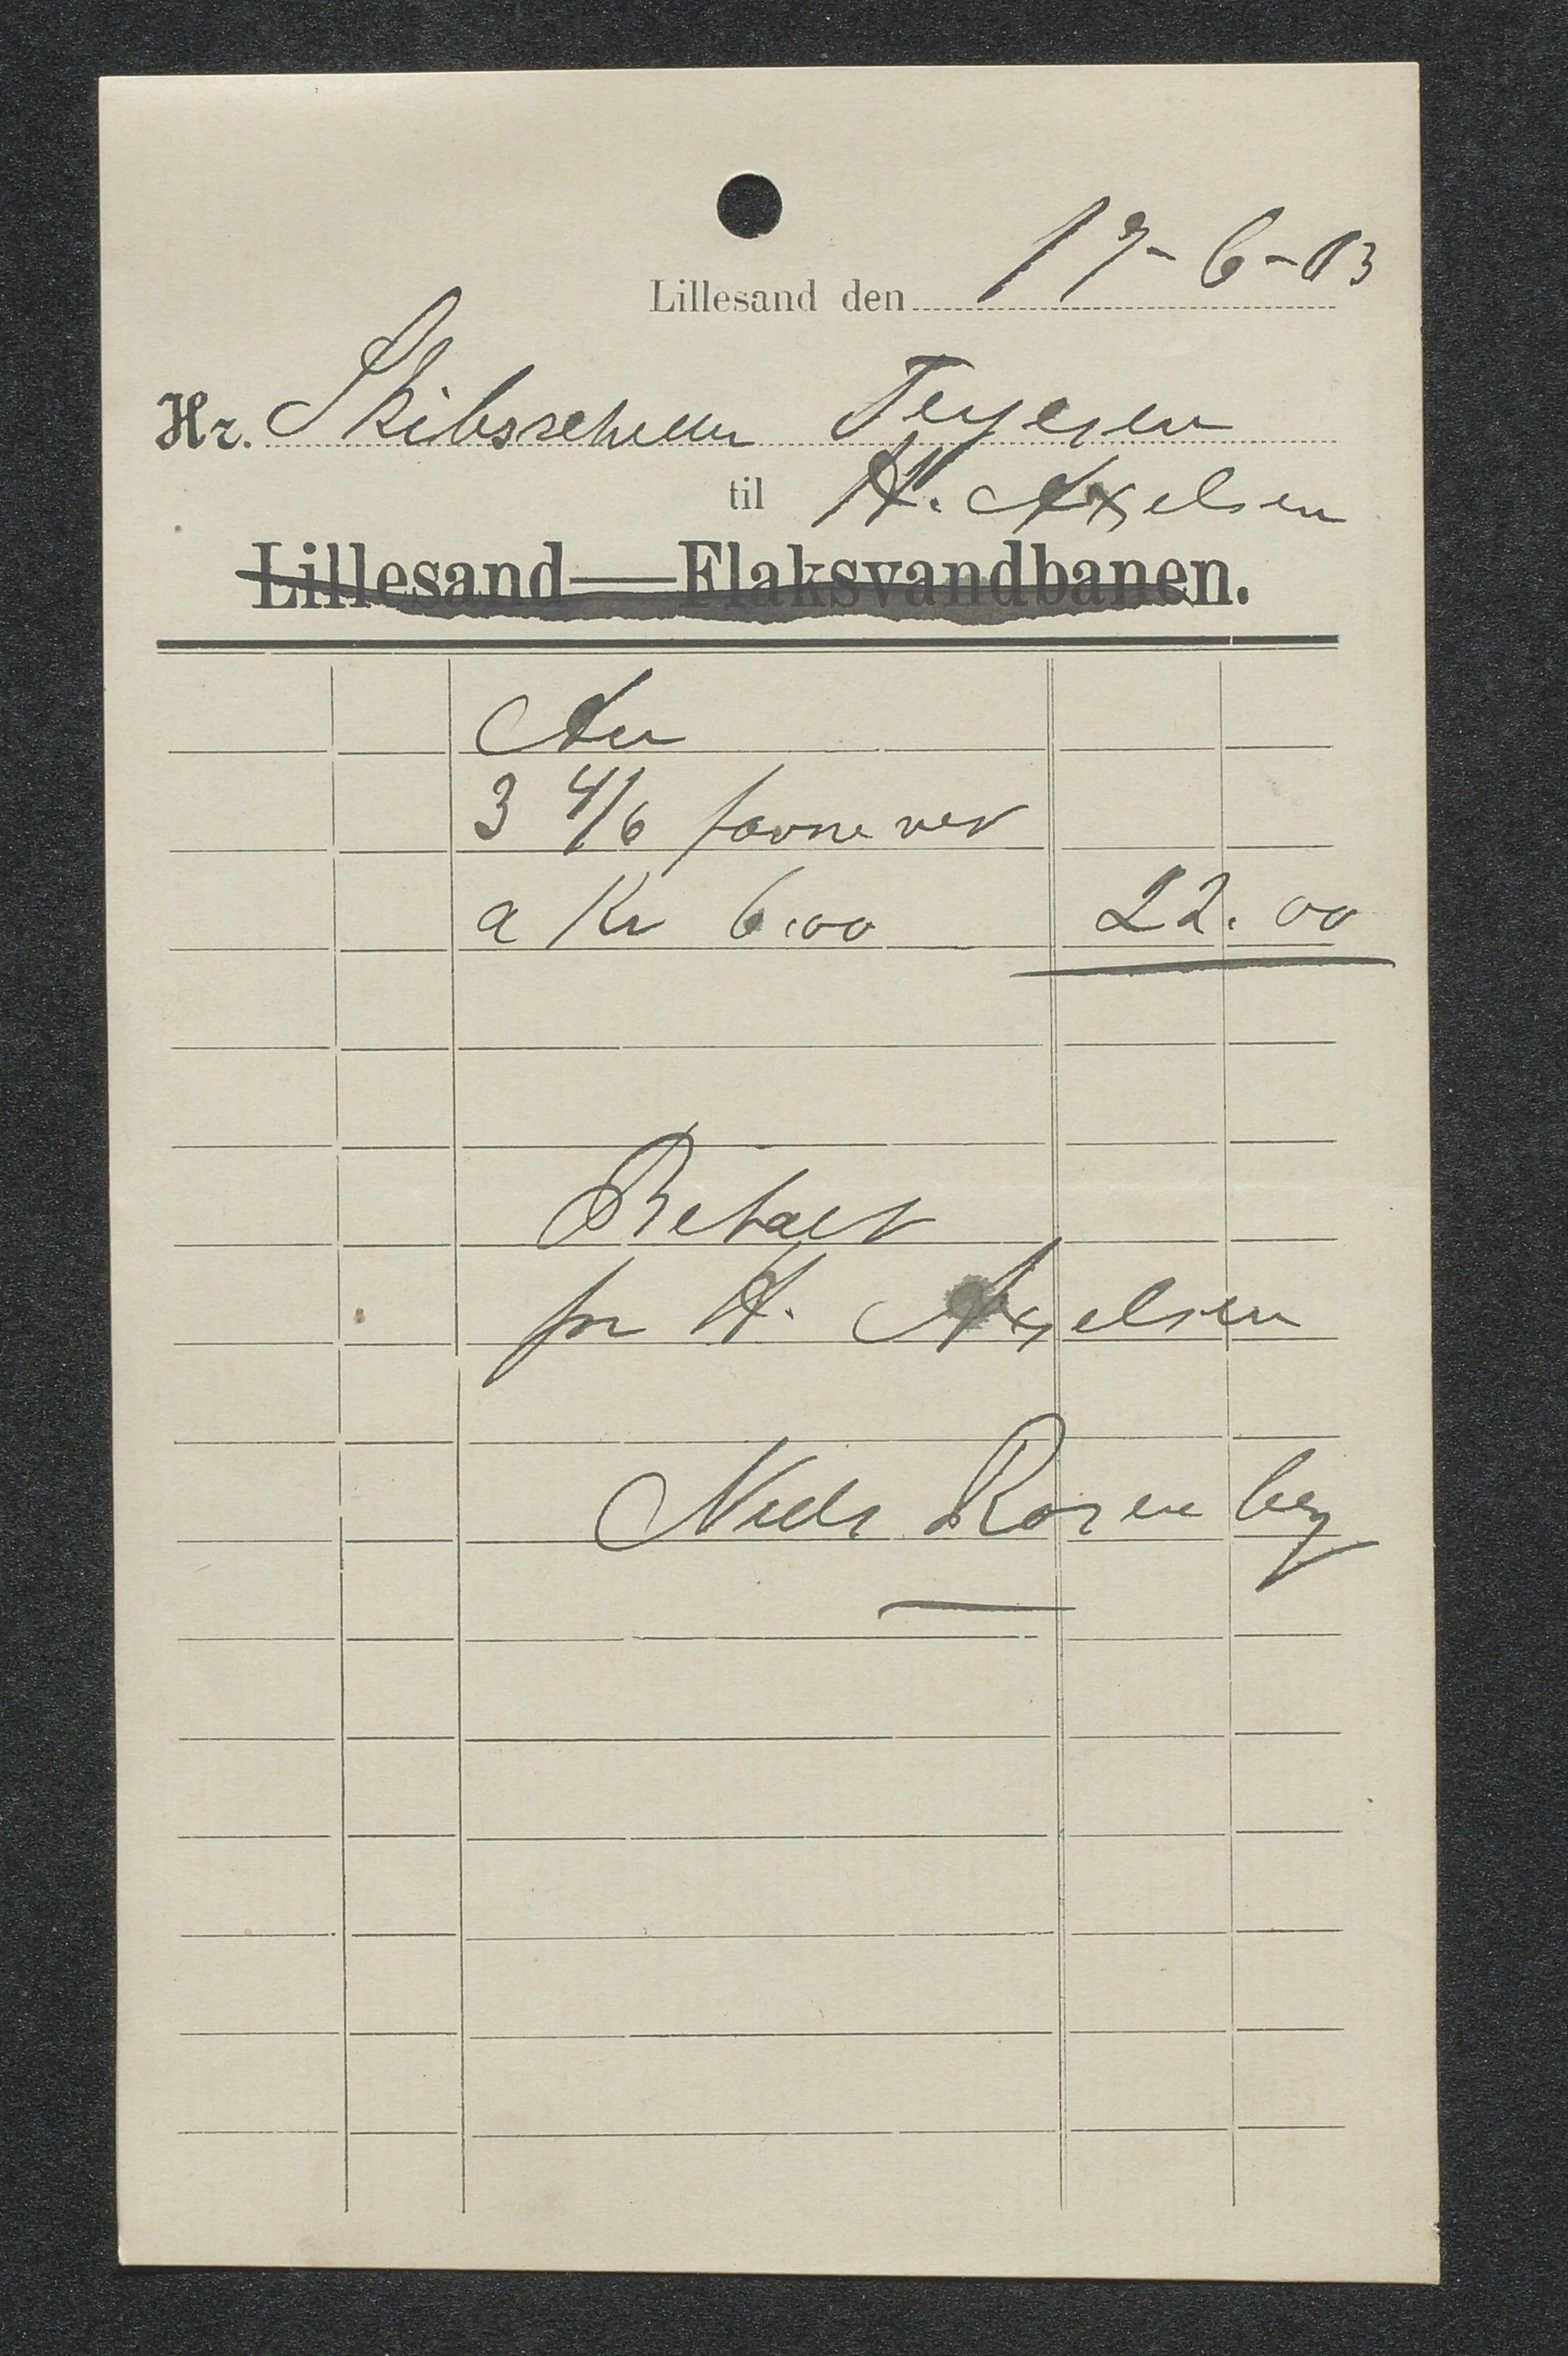 Lillesand den 17-6-13
Hr. Skibsreder Terjesen
til H. Axelsen
Lillesand—Flaksvandbanen.
An
3 4/6 favne ved
a Kr 6.00 22.00
Betalt
for H. Axelsen
Niels Rosenberg